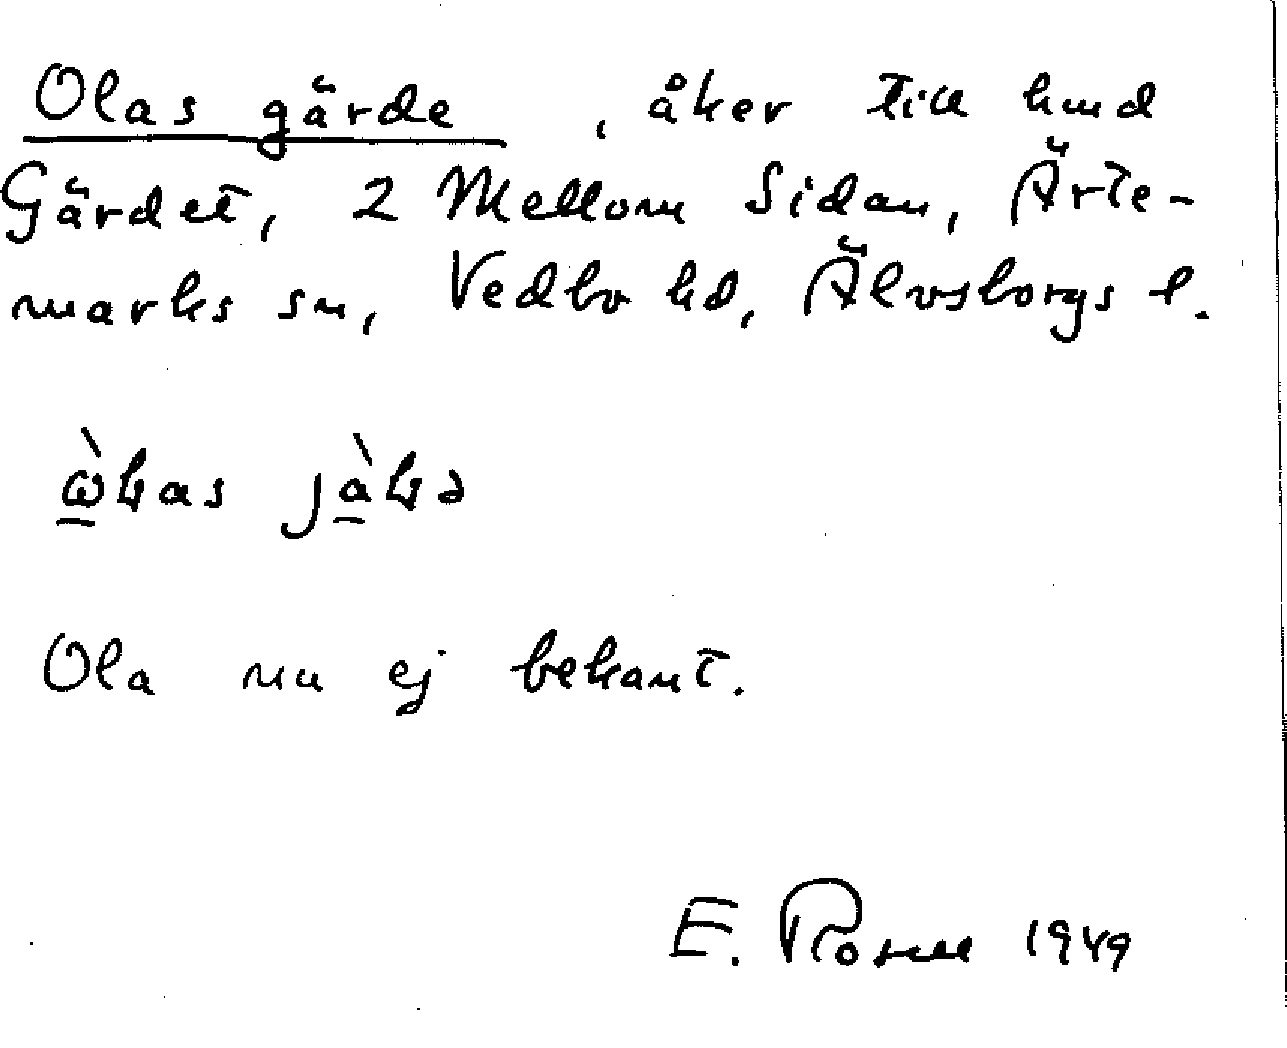 Olas gärde, åker till hmd
Gärdet, 2 Mellom Sidan, Ärte-
marks sn, Vedbo hd, Älvsborgs l.
Ola nu ej bekant.
E. Rosell 1949